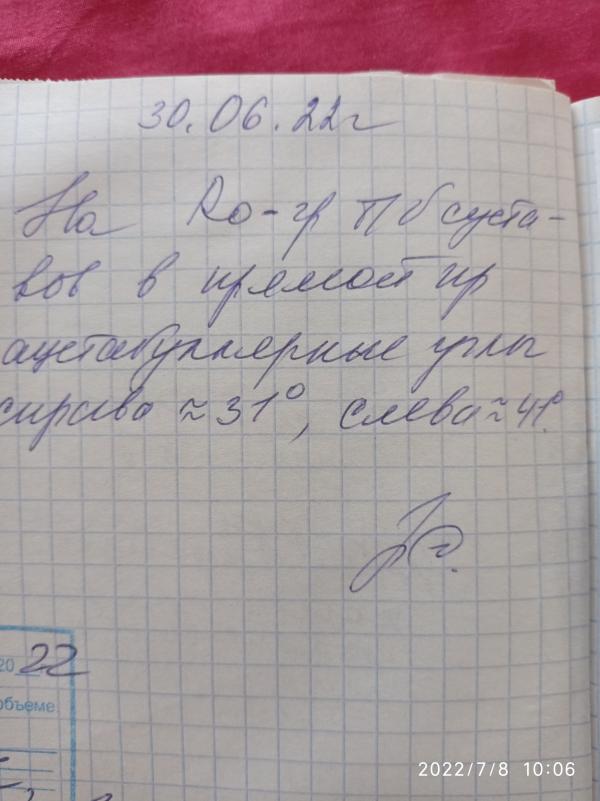 30.06.22г
На Rо-гр ТБ суста-
вов в прямой пр
ацетабуллярные углы
справа ≈31°, слева≈41°.
20 22
объеме
2022/7/8 10:06